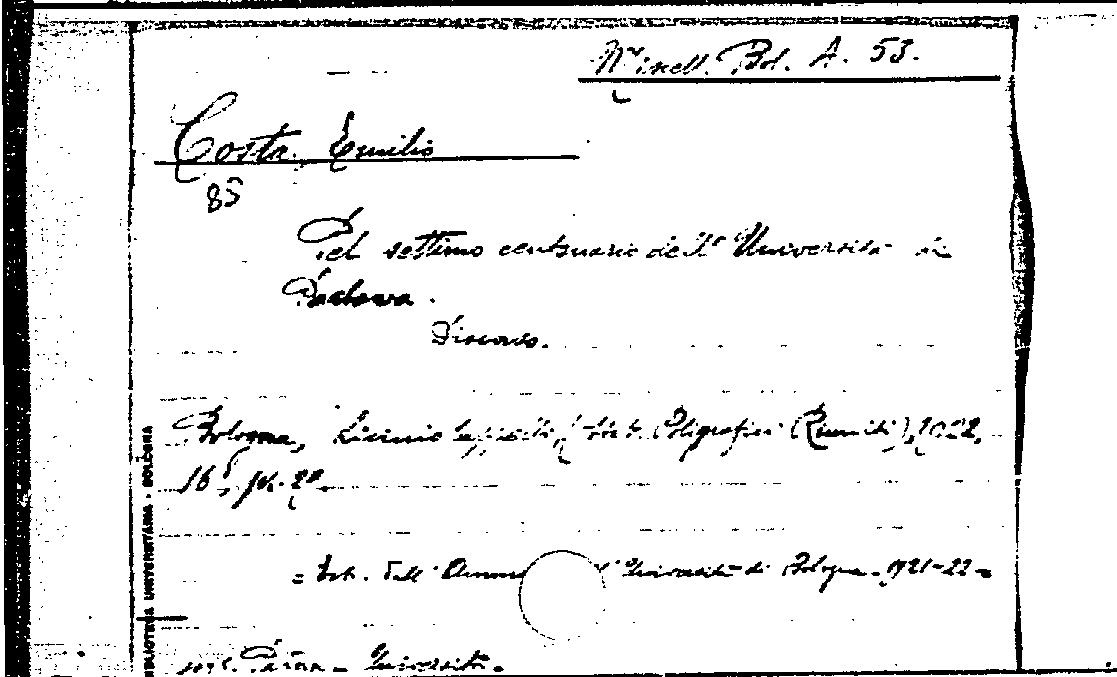 Miscell. Bol. A. 53.
Costa Emilio
85
Pel settimo centenario dell' Università di
Padova.
Discorso.
Bologna, Licinio Cappelli, (Stab. Poligrafici Riuniti), 1922,
16°, pp. 20
= Estr. dall' Università di Bologna - 1921-22 =
Padova - Università.
BIBLIOTECA UNIVERSITARIA - BOLOGNA